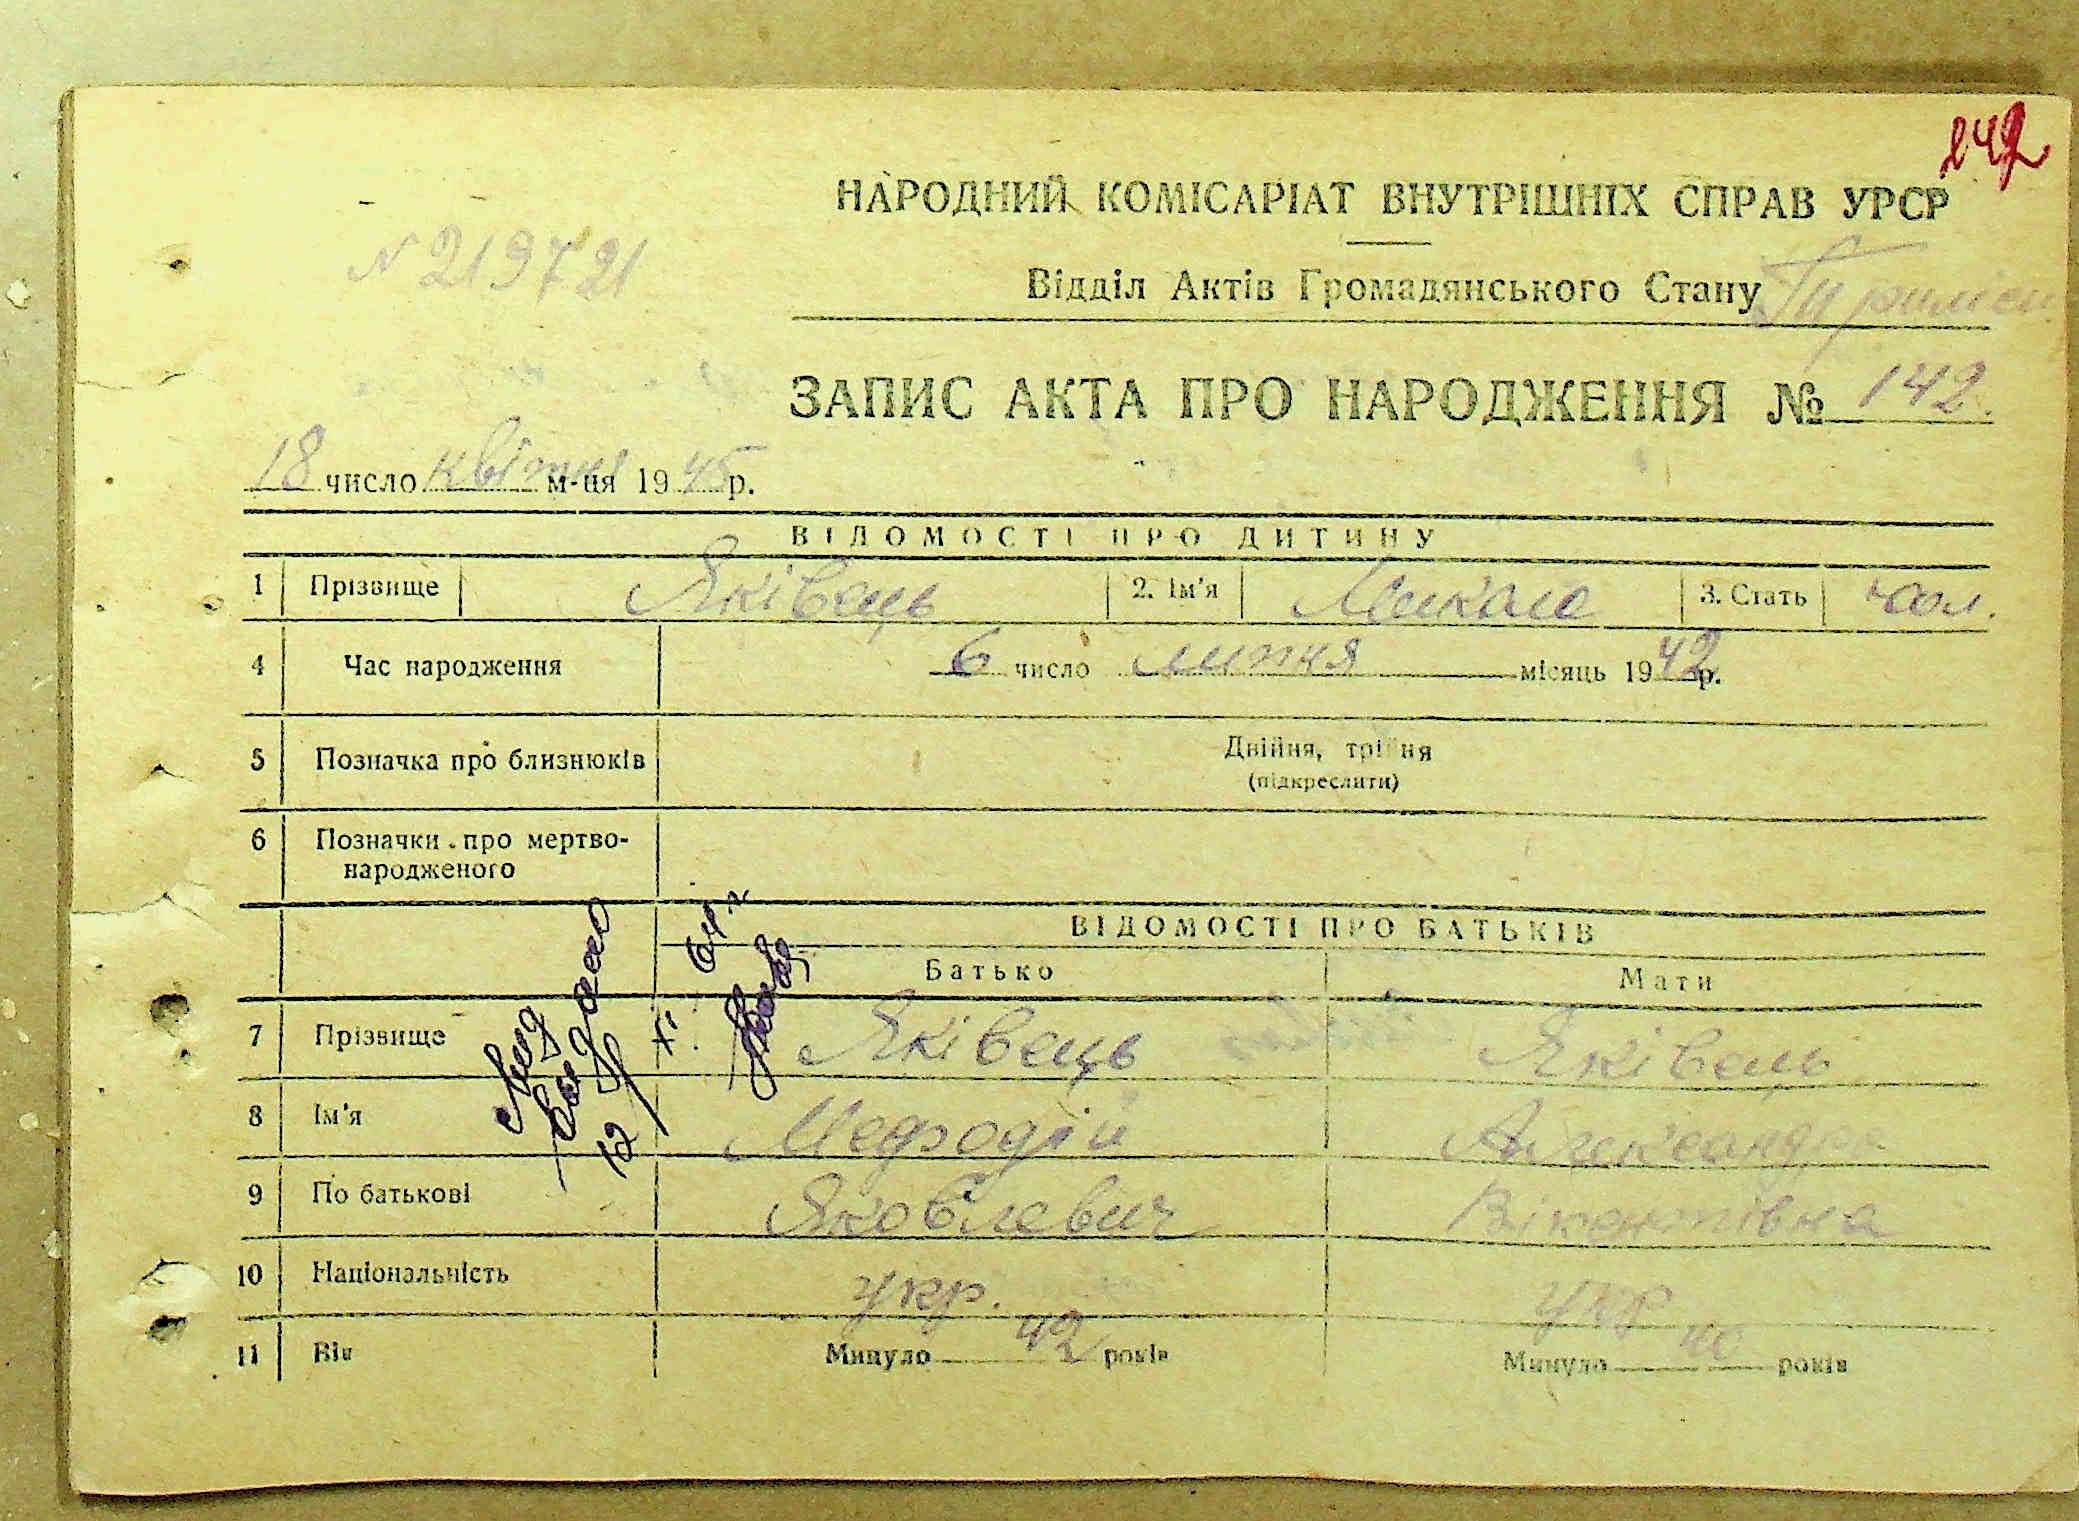 242
НАРОДНИЙ КОМІСАРІАТ ВНУТРІШНІХ СПРАВ УРСР
N 219721
Відділ Актів Громадянського Стану
ЗАПИС АКТА ПРО НАРОДЖЕННЯ № 142.
18 число квітня м-ця 1945 р.
ВІДОМОСТІ ПРО ДИТИНУ
1 Прізвище Яківець 2. Ім'я Микола 3. Стать чол.
4 Час народження 6 число липня місяць 1942 р.
5 Позначка про близнюків Двійня, трійня
(підкреслити)
6 Позначки про мертво-
народженого
ВІДОМОСТІ ПРО БАТЬКІВ
Батько Мати
7 Прізвище Яківець Яківець
8 Ім'я Мефодій Александра
9 По батькові Яковлевич Вікентівна
10 Національність укр. укр
11 Вік Минуло 42 років Минуло 40 років